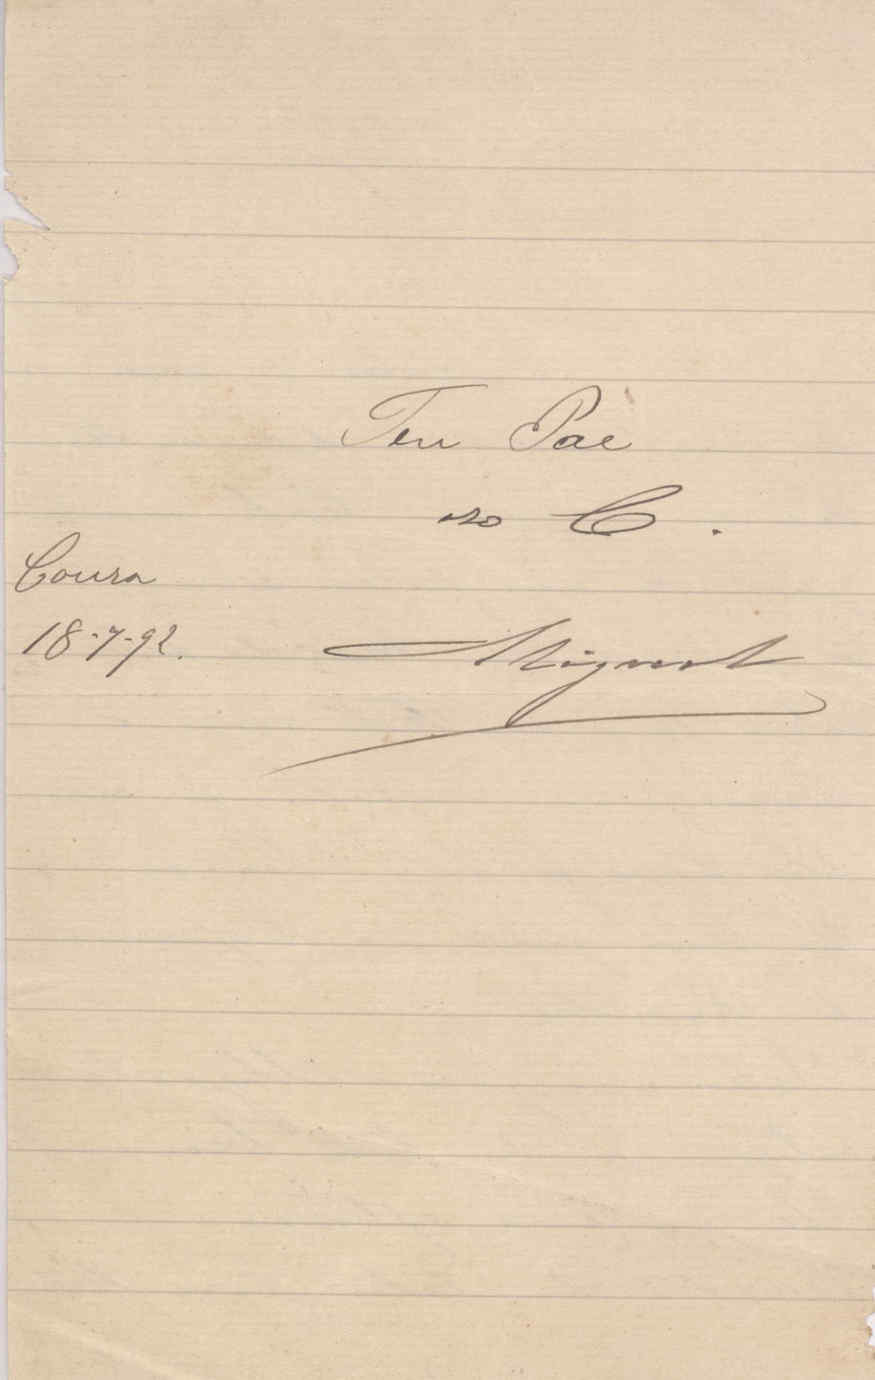 Teu Pae
no C.
Coura
18-7-92.
Miguel